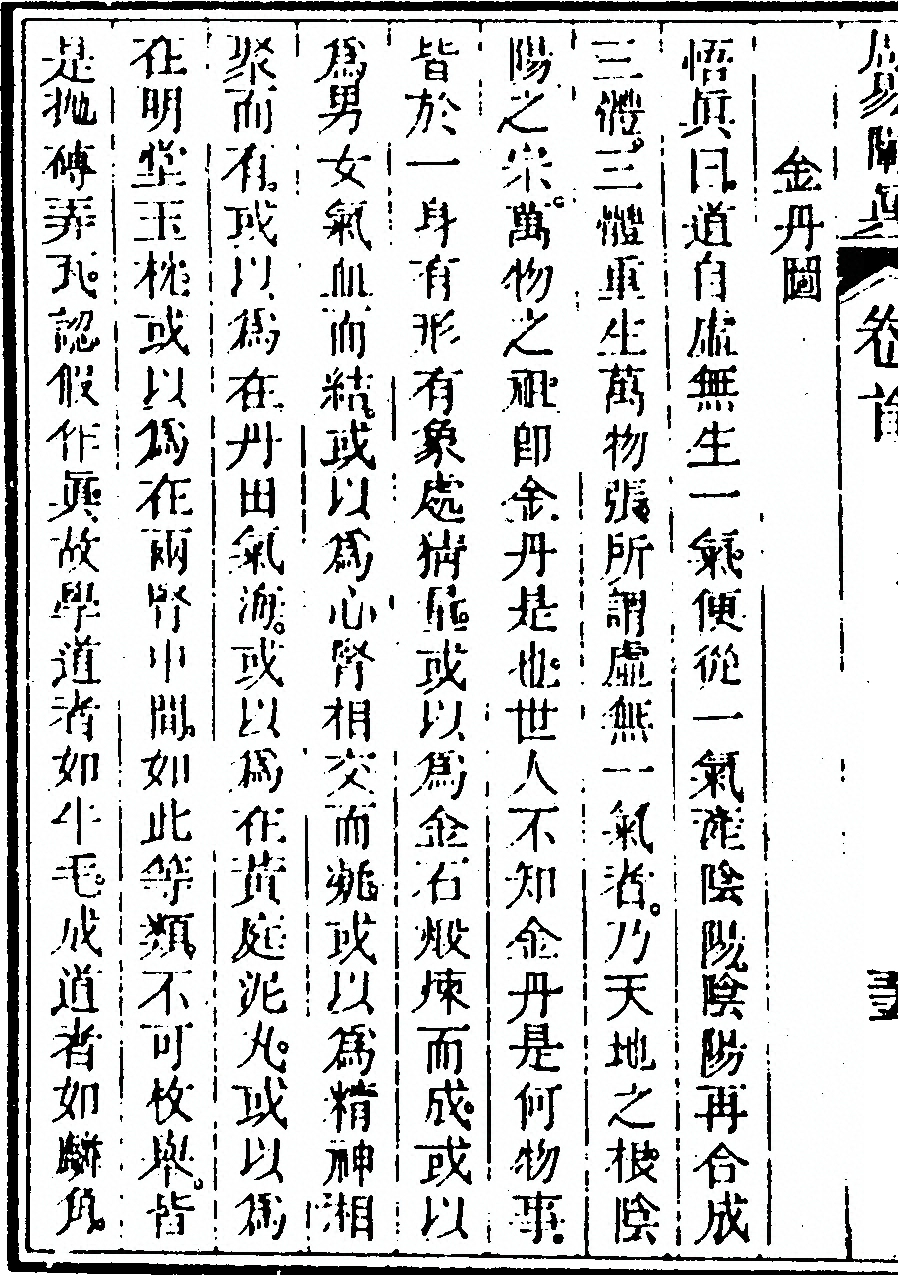 周易闡真 卷首
金丹圖
悟真曰。道自虛無生一氣。便從一氣產陰陽。陰陽再合成
三體。三體重生萬物張。所謂虛無一氣者。乃天地之根。陰
陽之宗。萬物之祖。即金丹是也。世人不知金丹是何物事。
皆於一身有形有象處猜量。或以為金石煅煉而成。或以
為男女氣血而結。或以為心腎相交而凝。或以為精神相
聚而有。或以為在丹田氣海。或以為在黃庭泥丸。或以為
在明堂玉枕。或以為在兩腎中間。如此等類。不可枚舉。皆
是拋磚弄瓦。認假作真。故學道者如牛毛。成道者如麟角。